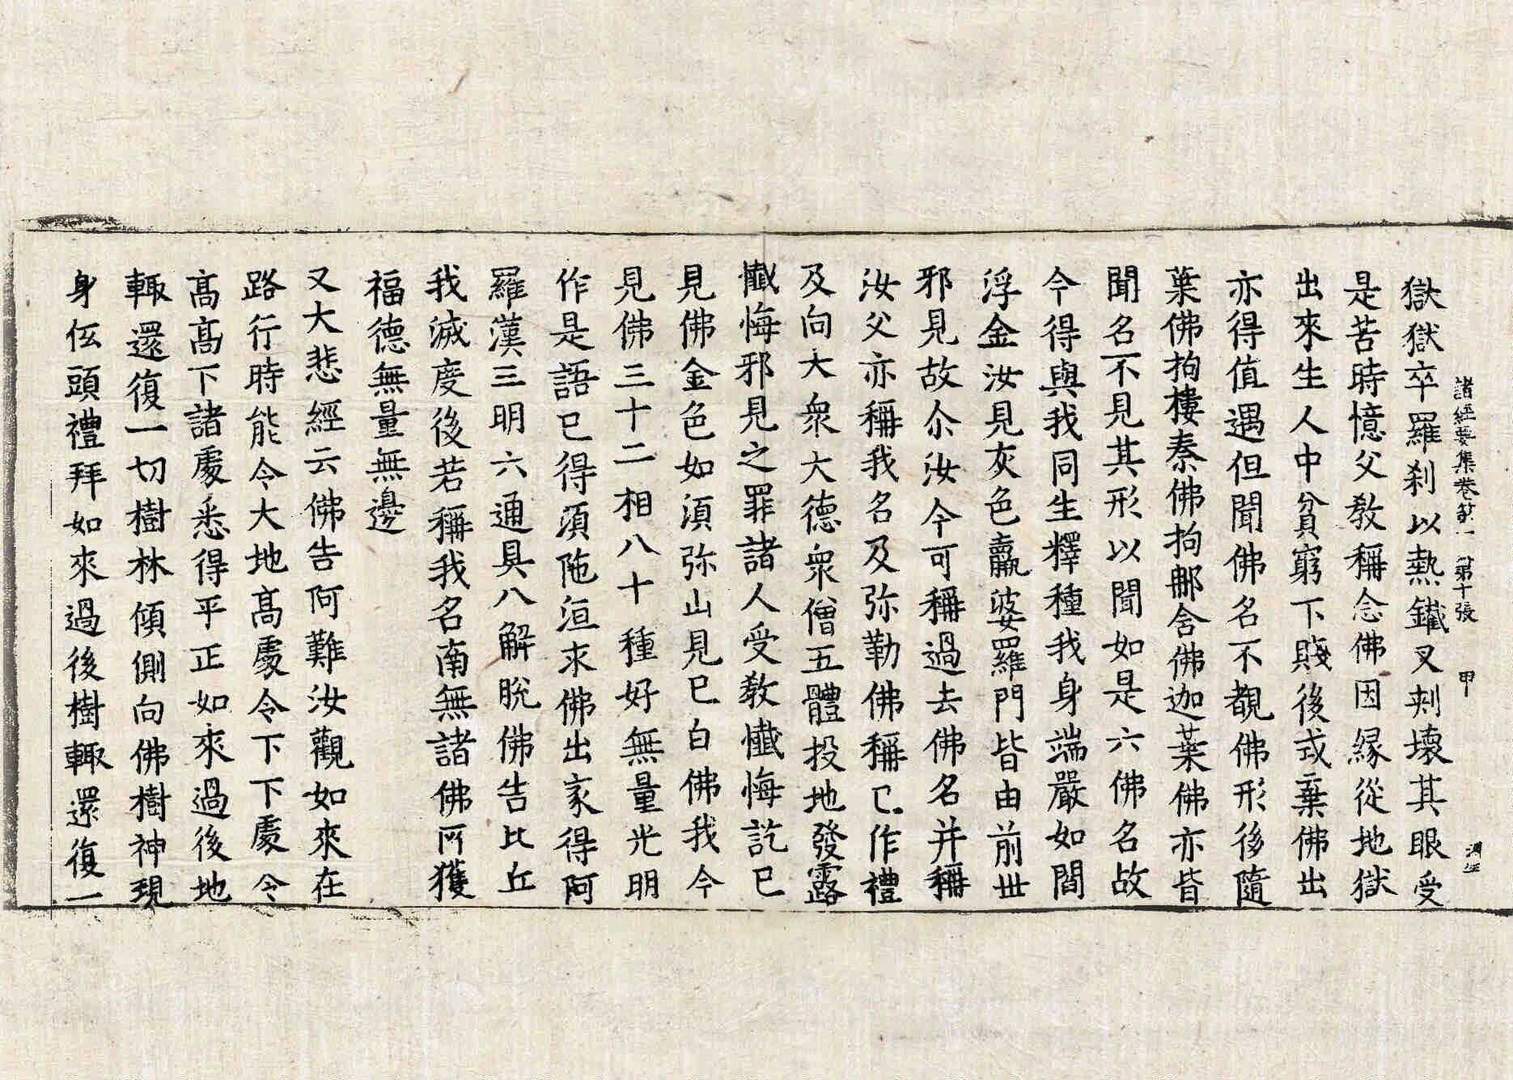 諸經要集卷苐一 第十張 甲
獄獄卒羅刹以熱鐵叉刾壞其眼受
是苦時憶父教稱念佛因緣從地獄
出來生人中貧窮下賤後或棄佛出
亦得值遇但聞佛名不覩佛形後隨
葉佛拘樓秦佛拘䣯含佛迦葉佛亦皆
聞名不見其形以聞如是六佛名故
今得與我同生釋種我身端嚴如閻
浮金汝見灰色羸婆羅門皆由前丗
邪見故尒汝今可稱過去佛名并稱
汝父亦稱我名及弥勒佛稱已作禮
及向大衆大德衆僧五體投地發露
懺悔邪見之罪諸人受教懺悔訖已
見佛金色如湏弥山見已白佛我今
見佛三十二相八十種好無量光明
作是語已得湏陁洹求佛出家得阿
羅漢三明六通具八解脫佛告比丘
我滅度後若稱我名南無諸佛所獲
福德無量無邊
又大悲經云佛告阿難汝觀如來在
路行時能令大地高處令下下處令
高高下諸處悉得平正如來過後地
輙還復一切樹林傾側向佛樹神現
身伍頭禮拜如來過後樹輙還復一